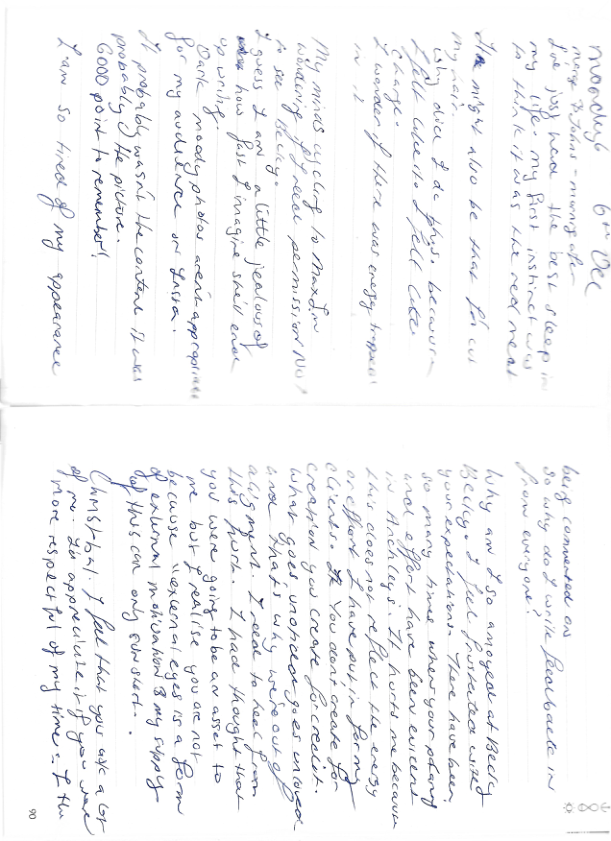 6th Dec
I've just had the best sleep in
my life. my first instinct was
to think it was the red meat
It might also be that I've cut
my hair.
Why did I do this. because
I felt like it. I felt like
change.
I wonder if there was energy trapped
in it
My minds cycling to
wondering if I need permission not
to see Becky.
I guess I am a little jealous of
how fast I imagine she'll end
up writing.
Dark moody photos aren't appropriate
for my audience on Insta.
It probably wasn't the content it was
probably the picture.
Good point to remember!
I am so tired of my appearance
being commented on
so why do I write feedback in
from everyone?
Why am I so annoyed at Becky
Becky. I feel frustrated with
your expectations. There have been
so many times when your planning
and effort have been evident
in It hurts me because
this does not reflect the energy
or effort I have put in for my
clients. You don't create for
creation you create for credit.
What goes unnoticed goes unloved
and that's why we're out of
alignment. I need to heal from
this hurt. I had thought that
you were going to be an asset to
me but I realise you are not
because "external eyes is a form
of external motivation & my supply
of this can only
I feel that you ask a lot
of me. I'd appreciate it if you were
more respectful of my time = I
90